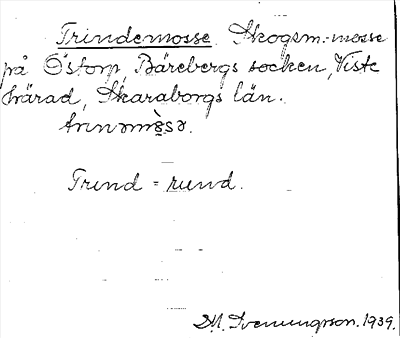 Trindemosse. Skogsm.-mosse
på Östorp, Bärebergs socken, Viste
härad, Skaraborgs län.
Trind = rund.
M. Svenungsson. 1939.